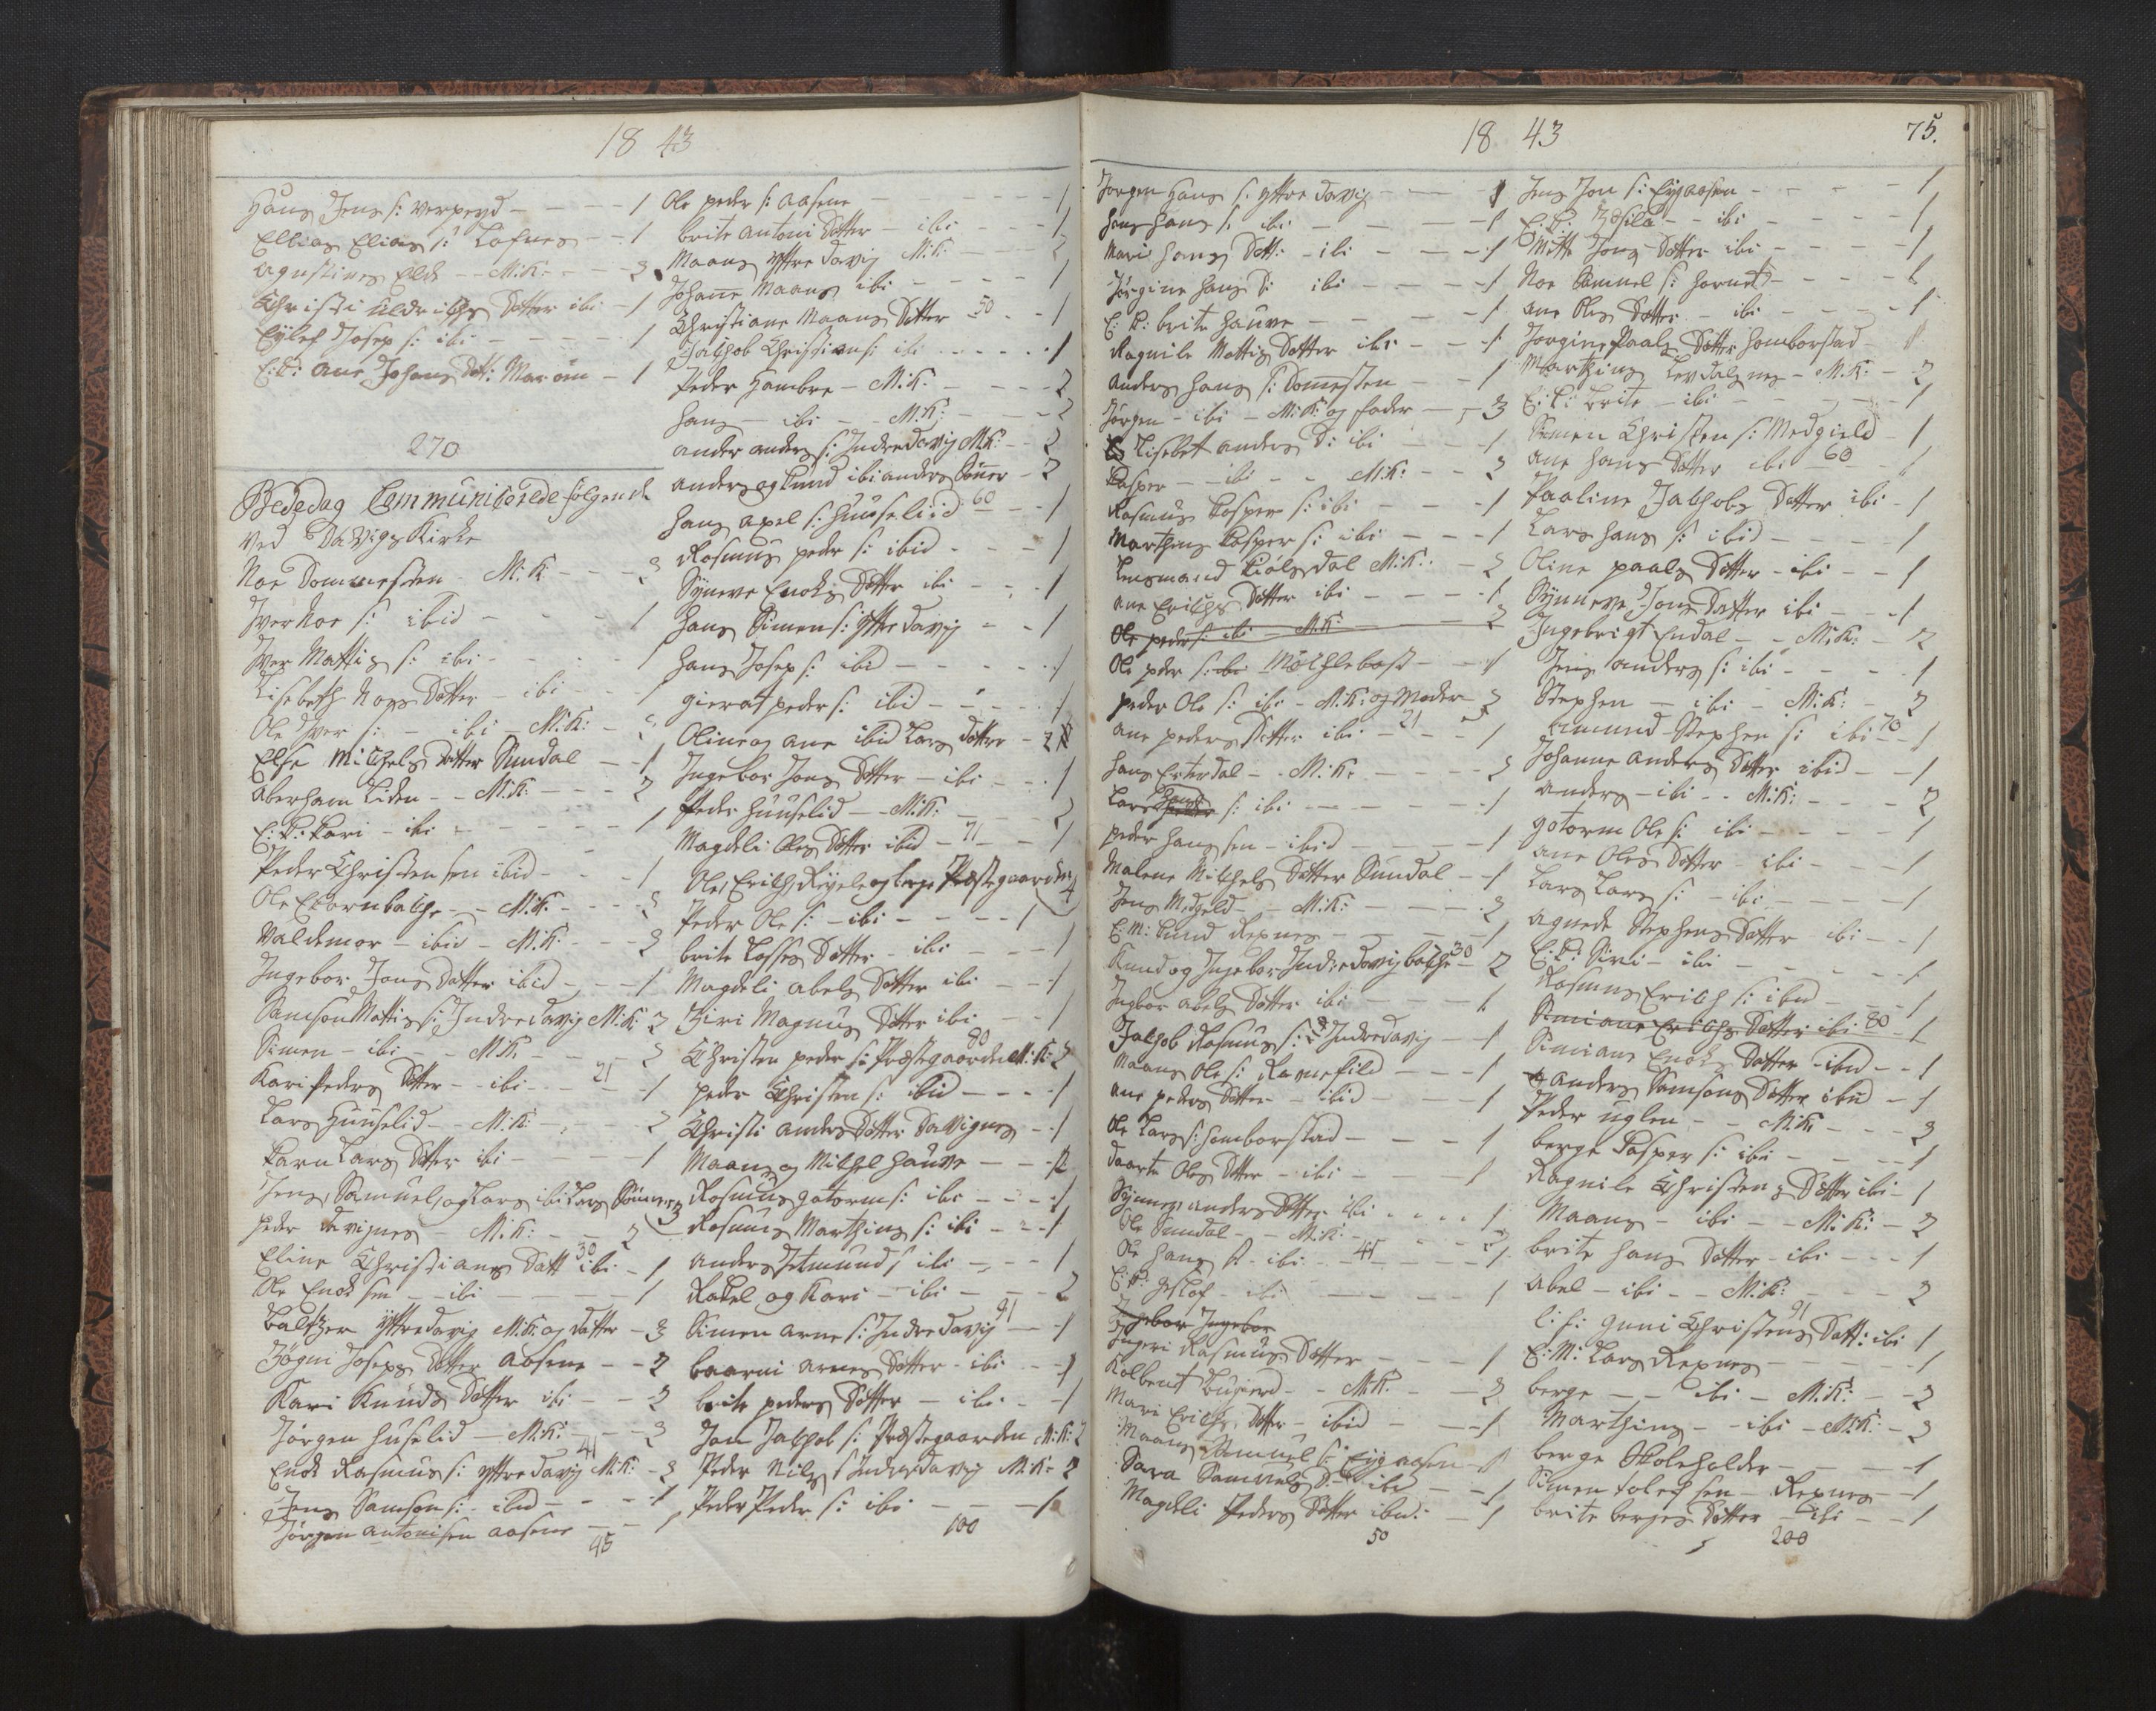 18 43
Hans Jens s: Verpeyd - - - - 1
Ellias Elias s: Lofnes - - 1
Agustinus Elde - - M:K: - - - 2
Christi Uldrichs Dotter ibi - 1
Eylef Josep s: ibi - - - - - 1
E: K: ane Johans Dot: Maraas - 1
270
Bededag Communicerede følgende
ved Davigs Kirke
Noe Domnesten - M:K - - - 2
Iver Noe s: ibid - - - 1
Iver Mattis s: ibi - - - 1
Lisebeth Noes Dotter - ibi - - - 1
Ole Iver s: - ibi - M:K: - 2
Else Michels Dotter Sundal - - 1
Aberham Liden - - M:K: - - - 2
E: K: Kari - ibi - - - - - 1
Peder Christensen ibid - - - 1
Ole Ebornbakke - - M:K: - - - 2
Valdemor - ibid - M:K: - - - 2
Ingebor Jons Datter ibid - - - 1
Samson Mattis s: Indredavig M:K: 2
Simen - ibi - - M:K: - - - 2
Kari Peders Dotter - - ibi - 21 - 1
Lars Huuselid - - M:K: - - - 2
Karn Lars Dotter ibi - - - 1
Jens, Samuel, og Lars ibi Lars Sønner 3
Peder Davignes - M:K: - - 2
Eline Christians Datt ibi 30 - 1
Ole Enoksen - - ibi - - - - 1
Baltzer yttredavig M:K: og datter - 3
Jøgni Joseps Dotter Aasene - - 2
Kari Knuds Dotter ibi - - 2
Jørgen Huselid - M:K: - - - 2
Enok Rasmus s: yttredavig 41 M:K: - 2
Jens Samson s: - ibid - - - 1
Jørgen Antonisen Aasene - - 1
45
Ole peder s: Aasene - - - - 1
brite Antoni Dotter - ibi - - - 1
Maans yttredavig M:K: - - - 2
Johane Maans ibi - - - - 1
Christiane Maans Dotter - 50 - - 1
Jakob Christian s: ibi - - - - 1
Peder Hambre - M:K: - - - - 2
Hans - ibi - - M:K: - - - 2
Ander anders s: Indredavig M:K: - - 2
Anders og Knud ibi anders Sønner - 2
Hans Axel s: Huuselid 60 - - 1
Rosmus peder s: ibid - - - 1
Synneve Enoks Dotter ibi - - - 1
Hans Simen s: yttredavig - - 1
Hans Josep s: ibid - - - - 1
Gierat peder s: ibid - - - - 1
Oline og ane ibid Lars dotter - 2
Ingebor Jons Dotter - ibi - - - 1
Peder Huuselid - - M:K: - - - 2
Magdeli Oles Dotter ibid - 71 - - 1
Ole, Erich, Røyel og berge Prestegaarden 4
Peder Ole s: - ibi - - - - 1
brite Lasses Dotter - ibi - - - 1
Magdeli Abels Dotter ibi - - 1
Ziri Magnus Dotter ibi - - - 1
Christen peder s: Prestegaarden 80 M:K: 2
Peder Christen s: ibid - - - 1
Christi Anders Dotter Davignes - - 1
Maans og Michel Hauve - - 2
Rosmus Gotorm s: ibi - - - 1
Rosmus Marthins s: ibi - - - 1
Anders Setmund s ibi - - - 1
Rakel og Kari - ibi - - - 2
Simen Arne s: Indredavig 91 - - 1
Baarni Arnes Dotter - ibi - - 1
brite peders Dotter - ibi - - 1
Jon Jakob s: Prestegaarden M:K: 2
Peder Nils s Indredavig M:K: 2
Peder Peder s: ibi - - - 1
100
18 43
75.
Jørgen Hans s: yttredavig - - - 1
Hans Hans s: ibi - - - - 1
Mari Hans Dott: - ibi - - - 1
Jørgine Hans D: ibi - - - - 1
E: K: brite Hauve - - - - 1
Ragnile Mattis Dotter ibi - - - 1
Anders Hans s: Domnesten - - 1
Jørgen - ibi - M:K: og fader - - 3
Lisebet Anders D: ibi - - - 1
Kasper - - ibi - - M:K: - - 2
Rasmus Kasper s: ibi - - - 1
Marthins Kasper s: ibi - - - 1
Lensmand Kiølsdal M:K: - - 2
Ane Erichs Dotter ibi - - - - 1
Ole peder s: ibi - M:K: - - 2
Ole peder s: ibi Møchlebost - - 1
Peder Ole s: ibi - M:K: og Moder - 3
Ane peders Dotter ibi - 21 - - 1
Hans Endal - - M:K: - - - - 2
Lars Hans s: ibi - - - - 1
Peder Hanssen - ibid - - - - 1
Malene Michels Dotter Sundal - - 1
Jens Medgeld - - M:K: - - - - 2
E: M: Knud Repnes - - - - 1
Knud og Ingebor Indredavigbakke 30 - 2
Ingbor Abels Dotter ibi - - - 1
Jakob Rasmus s: Indredavig - - 1
Maans Ole s: Ramefild - - - 1
Ane peders Dotter - ibid - - - 1
Ole Lars s: Hamborstad - - - 1
Daarte Oles Dotter - ibi - - - 1
Synneve Anders Dotter ibi - - - - 1
Ole Sundal - - M:K: - - - 2
Ole Hans s: - ibi - 41 - - - 1
E: K: Gislof - ibi - - - - 1
Ingebor Ingebor
Ingeri Rasmus Dotter - - - 1
Kolbent Busierd - - M:K: - - 2
Mari Erichs Dotter - ibid - - - 1
Maans Samuel s: Eygaasen - 1
Sara Samuels D: ibi - - 1
Magdeli Peders Dotter ibid: - 1
50
Jens Jon s: Eygaasen - - - - 1
E: K: Zesilia - - ibi - - - - 1
Mette Jons Dotter ibi - - - - 1
Noe Samuel s: Hornet - - - 1
Ane Oles Dotter - ibi - - - 1
Jørgine Paals Dotter Hamborstad - 1
Marthins Levdalsnes - M:K: - 2
E: K: brite - ibi - - - - 1
Simen Christen s: Medgield - 1
Ane Hans Dotter ibi - 60 - - 1
Paaline Jakobs Dotter ibi - 1
Lars Hans s: ibid - - - - 1
Oline Paals Dotter - ibi - - 1
Synneve Jons Dotter ibi - - - 1
Ingebrigt Endal - - M:K: 2
Jens Anders s: ibi - - - - 1
Stephen - ibi - M:K: - 2
Amund Stephen s: ibi 70 - 1
Johanne Anders Dotter ibid - - 1
Anders - ibi - - M:K: - - - 2
Gotorm Ole s: ibi - - - - 1
Ane Oles Dotter - ibi - - - 1
Lars Lars s: - ibi - - - - 1
Agnede Stephens Dotter ibi - - 1
E: K: Siri - ibi - - - - - 1
Rasmus Erich s: ibid - - - 1
Simiane Erichs Dotter ibi 80 - 1
Simiane Enoks Dotter - ibid - - 1
Anders Samsons Dotter ibid - 1
Peder Uglen - - M:K: - - - 2
Berge Kasper s: ibi - - - - 1
Ragnile Christens Dotter ibi - 1
Maans - ibi - - M:K: - 2
brite Hans Dotter - ibi - - - 1
Abel - ibi - - M:K: - - - 2
l: f: Guni Christens Datt: ibi 91 1
E: M: Lars Repnes - - - - 1
Berge - - ibi - M:K: - - 2
Marthins - - ibi - M:K: - 2
Berge Skoleholder - - - 1
Simen Tolefsen - Repnes - - 1
brite berges Dotter - ibi - - 1
200